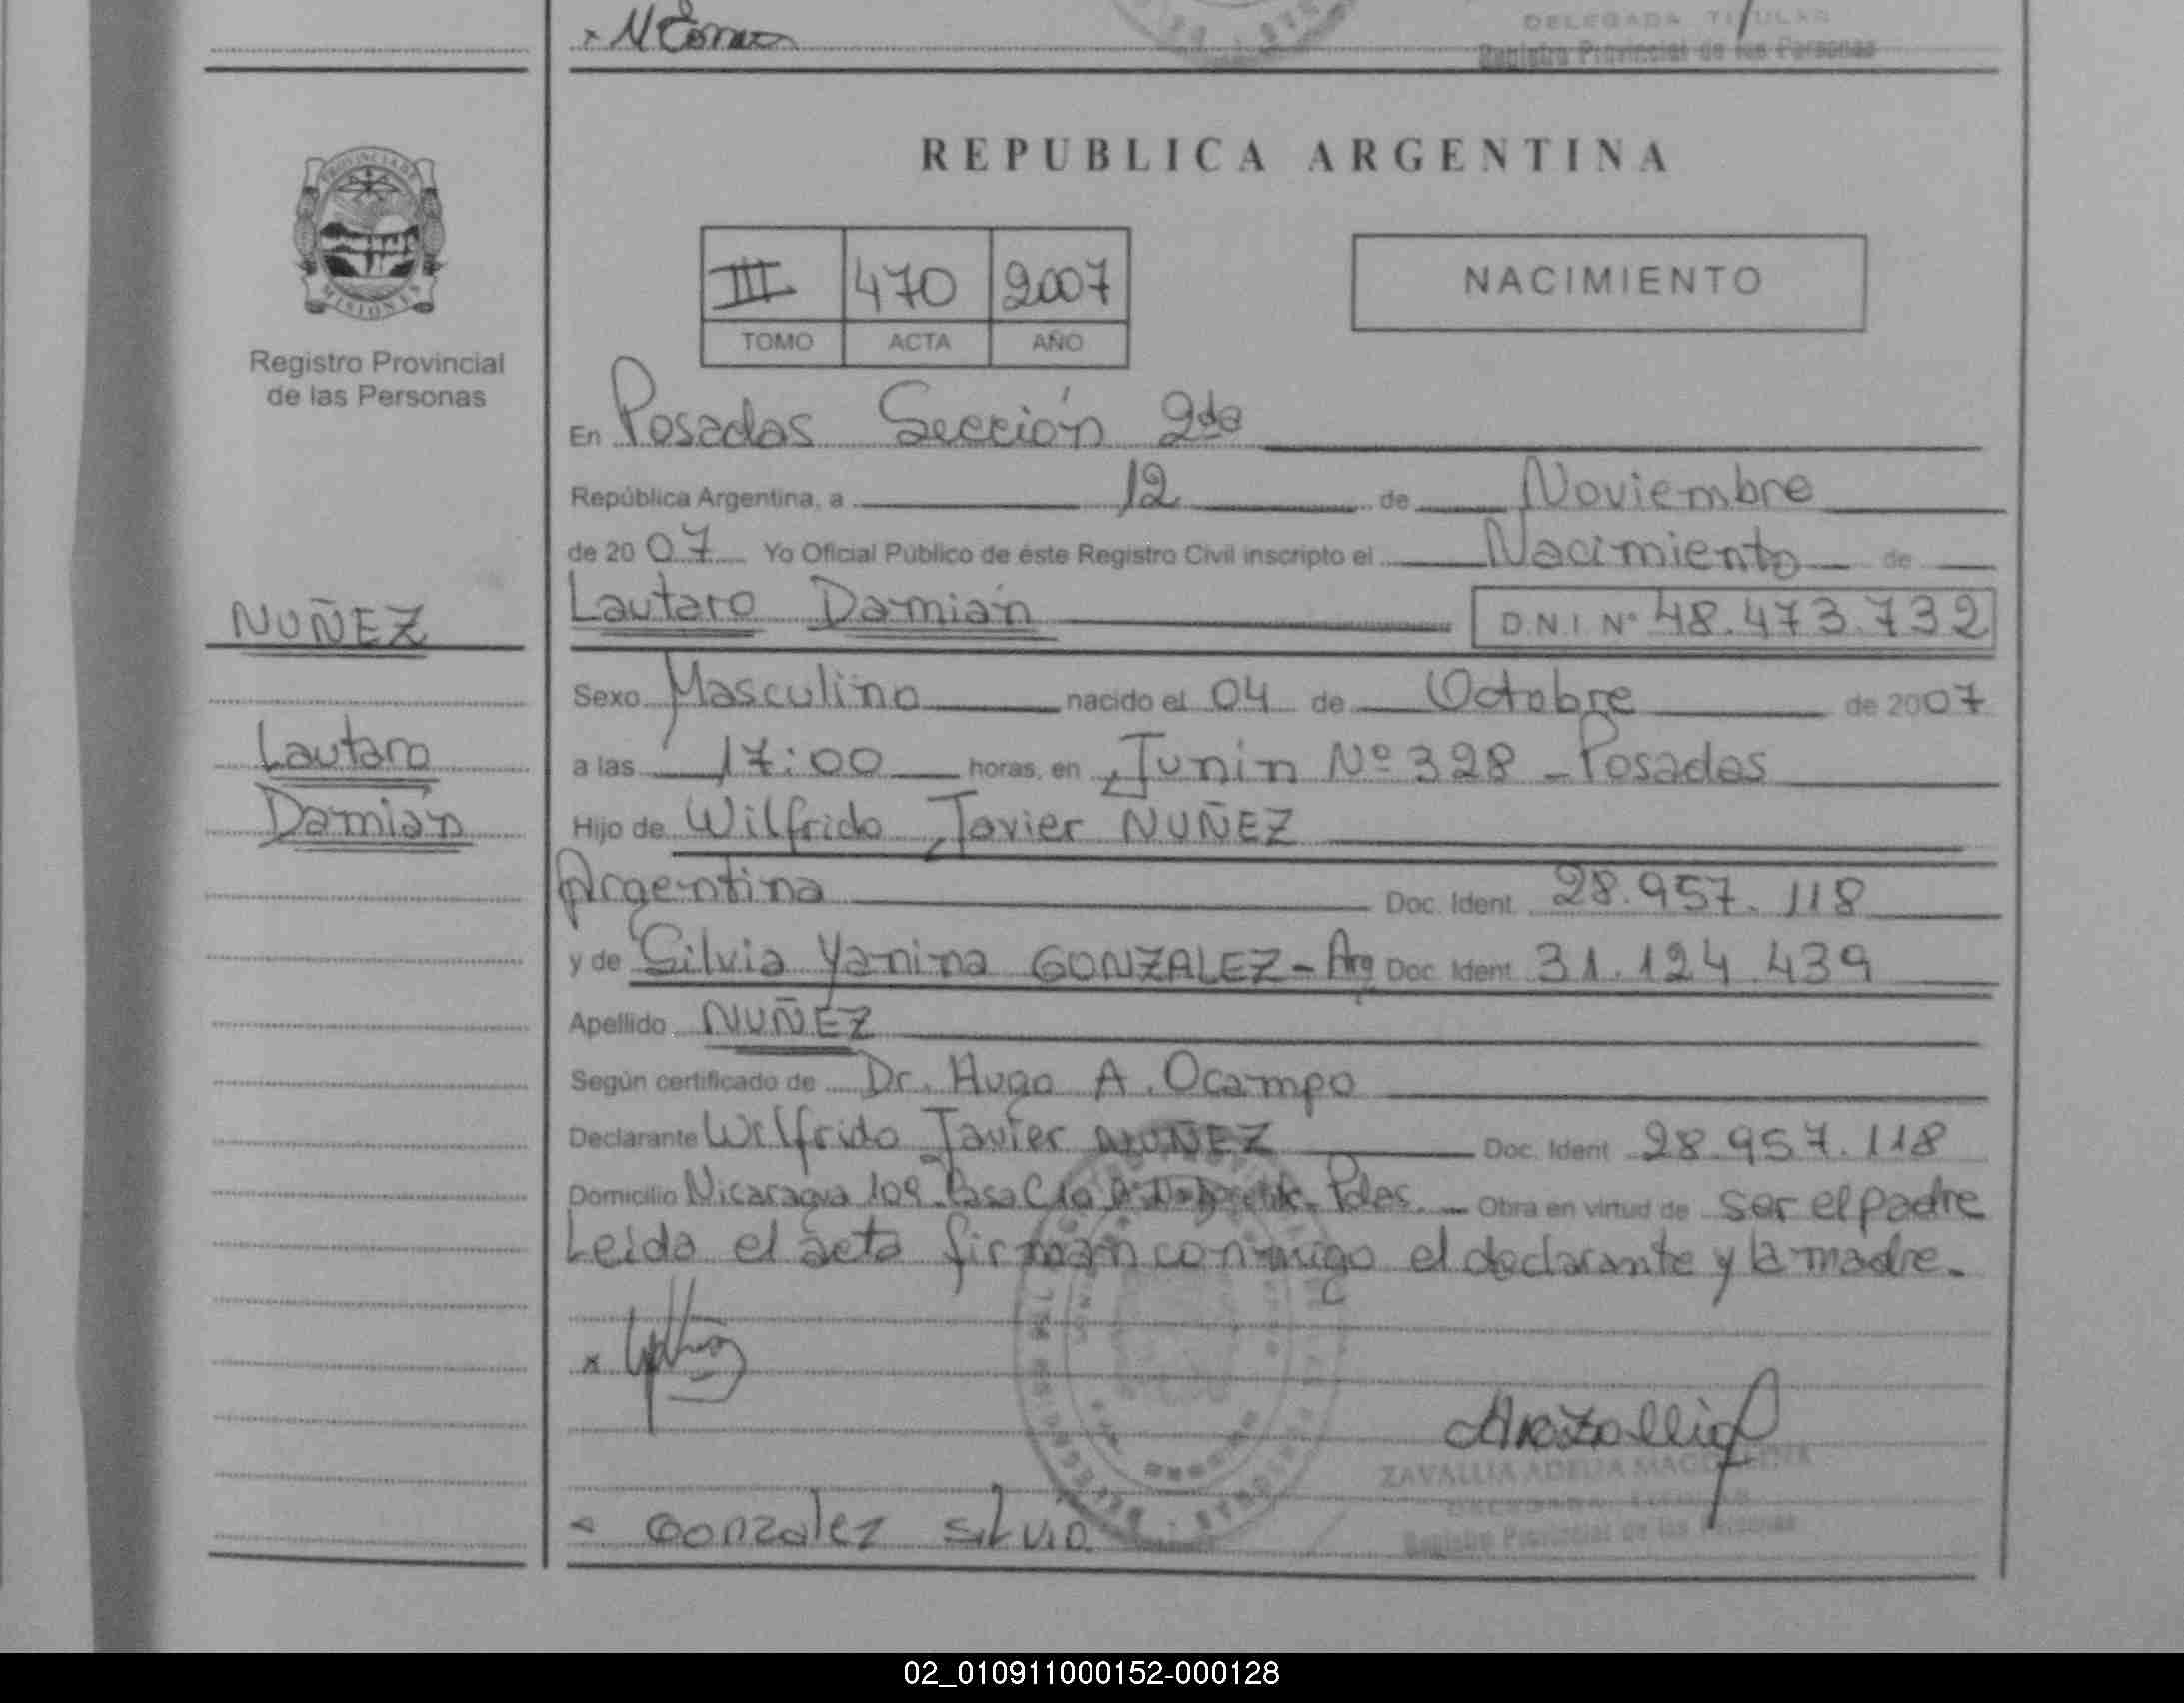 DELEGADA TITULAR
Registro Provincial de las Personas
REPUBLICA ARGENTINA
PROVINCIA DE
MISIONES
Registro Provincial
de las Personas
III 470 2007
TOMO ACTA AÑO
NACIMIENTO
En Posadas Sección 2da
República Argentina, a 12 de Noviembre
de 2007 Yo Oficial Público de éste Registro Civil inscripto el Nacimiento de
NUÑEZ
Lautaro Damián D.N.I. Nº 48.473.732
Sexo Masculino nacido el 04 de Octubre de 2007
Lautaro
a las 17:00 horas, en Junin Nº 328 - Posadas
Damián
Hijo de Wilfrido Javier NUÑEZ
Argentina Doc. Ident. 28.957.118
y de Silvia Yanina GONZALEZ - Arg Doc. Ident. 31.124.439
Apellido NUÑEZ
Según certificado de Dr. Hugo A. Ocampo
Declarante Wilfrido Javier NUÑEZ Doc. Ident. 28.957.118
Domicilio Nicaragua 109 Pdas. Obra en virtud de ser el padre
Leida el acta firman conmigo el declarante y la madre.
x
ZAVALLIA ADELIA MAGDALENA
DELEGADA TITULAR
Gonzalez Silvia
Registro Provincial de las Personas
02_010911000152-000128